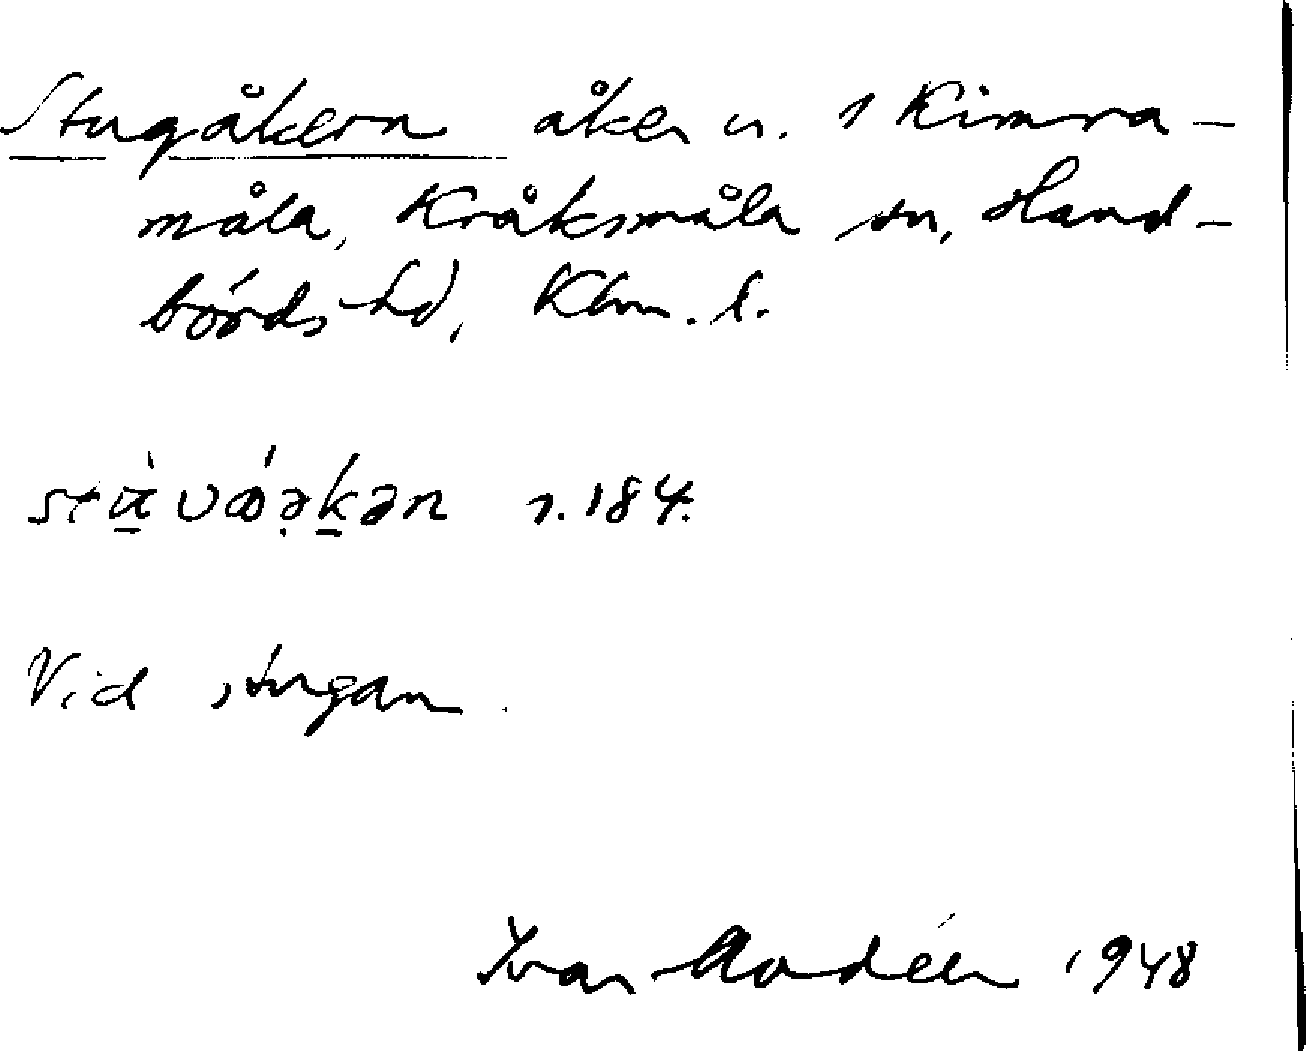 Stugåkern åker n. 1 Kimra-
måla, Kråksmåla sn, Hand-
börds hd, Klm. l.
s. 184.
Vid stugan.
Ivar Modéer 1948